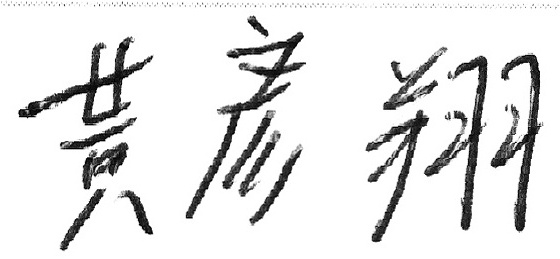 黄彦翔